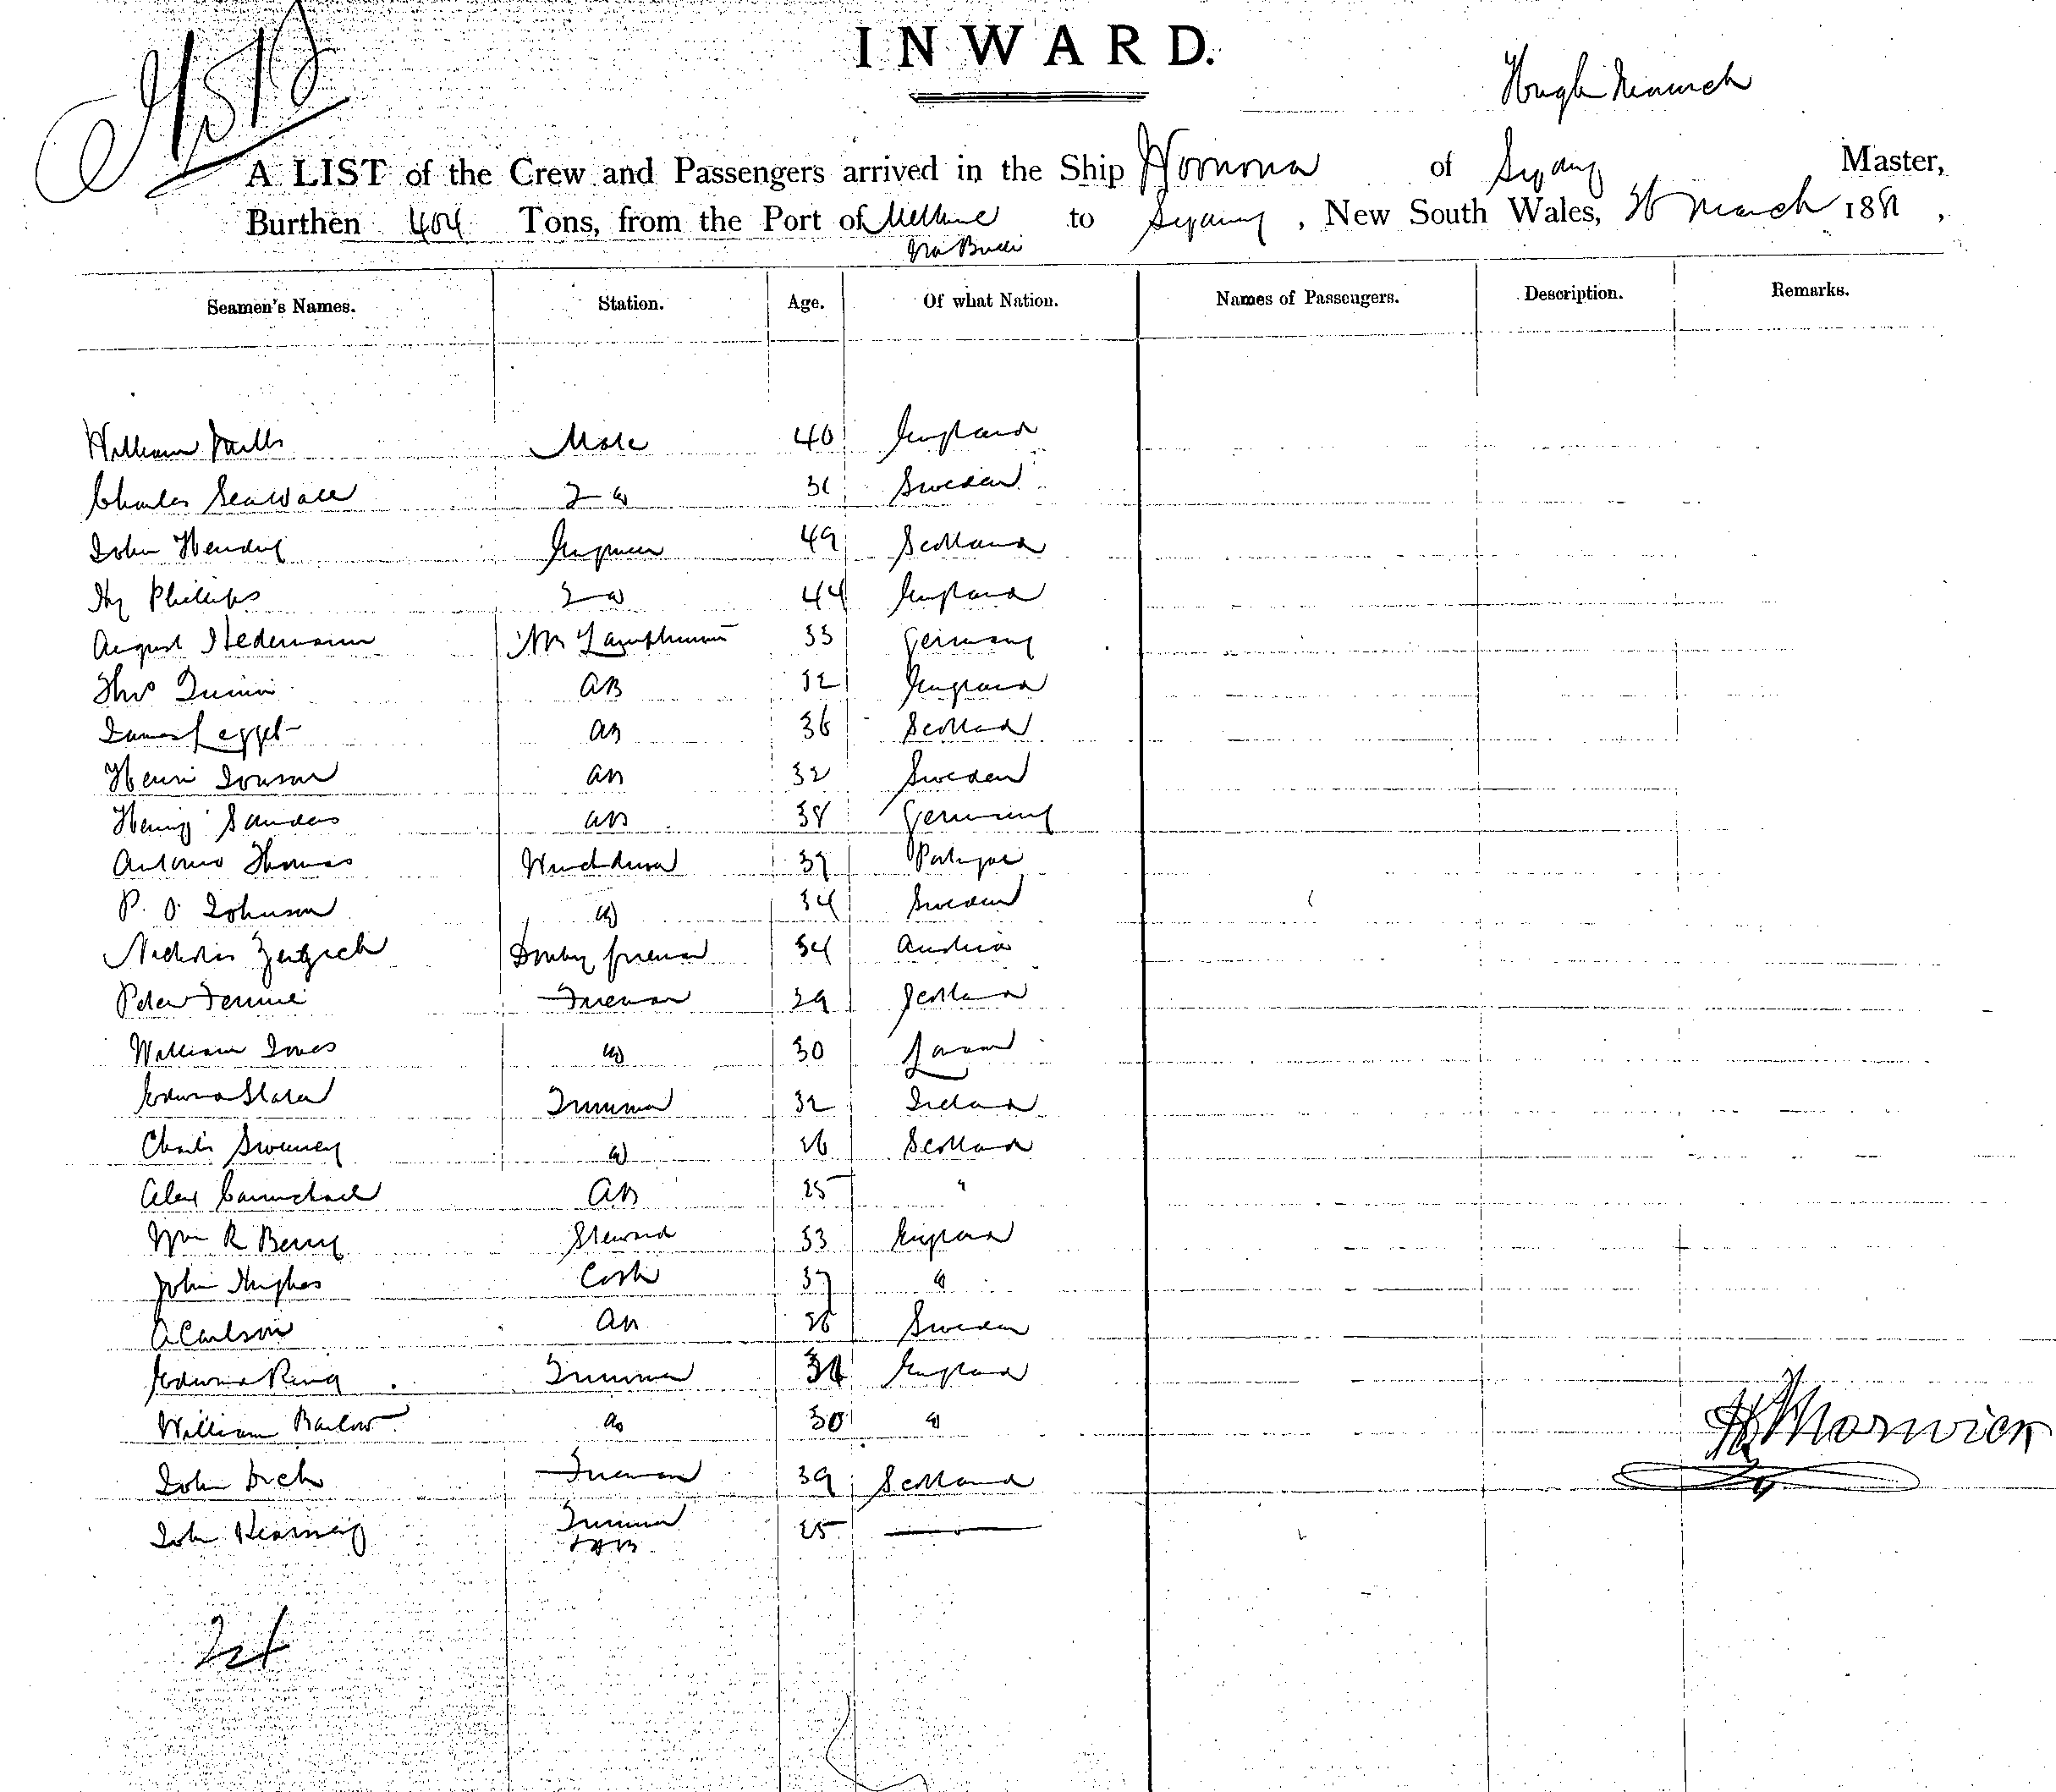 INWARD.
A LIST of the Crew and Passengers arrived in the Ship Woonona of Sydney Master,
Burthen 404 Tons, from the Port of Melbne to Sydney, New South Wales, 26 March 188
Via Bulli
Seamen's Names. Station. Age. Of what Nation. Names of Passengers. Description. Remarks.
William Mills Mate 40 England
Charles 2 31 Sweden
John Hendry Engineer 49 Scotland
Hy Phillips 2 44 England
August Hedemann Lamptrimmer 33 Germany
Thos Quinn AB 32 England
James Legget AB 36 Scotland
Henri AB 32 Sweden
Henry Sanders AB 38 Germany
Antonio Thomas Winchdriver 37 Portugal
P. O. Johnson do 34 Sweden
Nicholas Donkey fireman 34 Austria
Peter Fennie Fireman 39 Scotland
William Jones do 30
Edward Slater Trimmer 32 Ireland
Charles Sweeney do 26 Scotland
Alex Carmichael AB 25 "
Wm R Berry Steward 33 England
John Hughes Cook 37 do
A Carlson AB 26 Sweden
Edward King Trimmer 34 England
William Barlow do 30 do
John Fireman 39 Scotland
John Kearney Trimmer 25
24